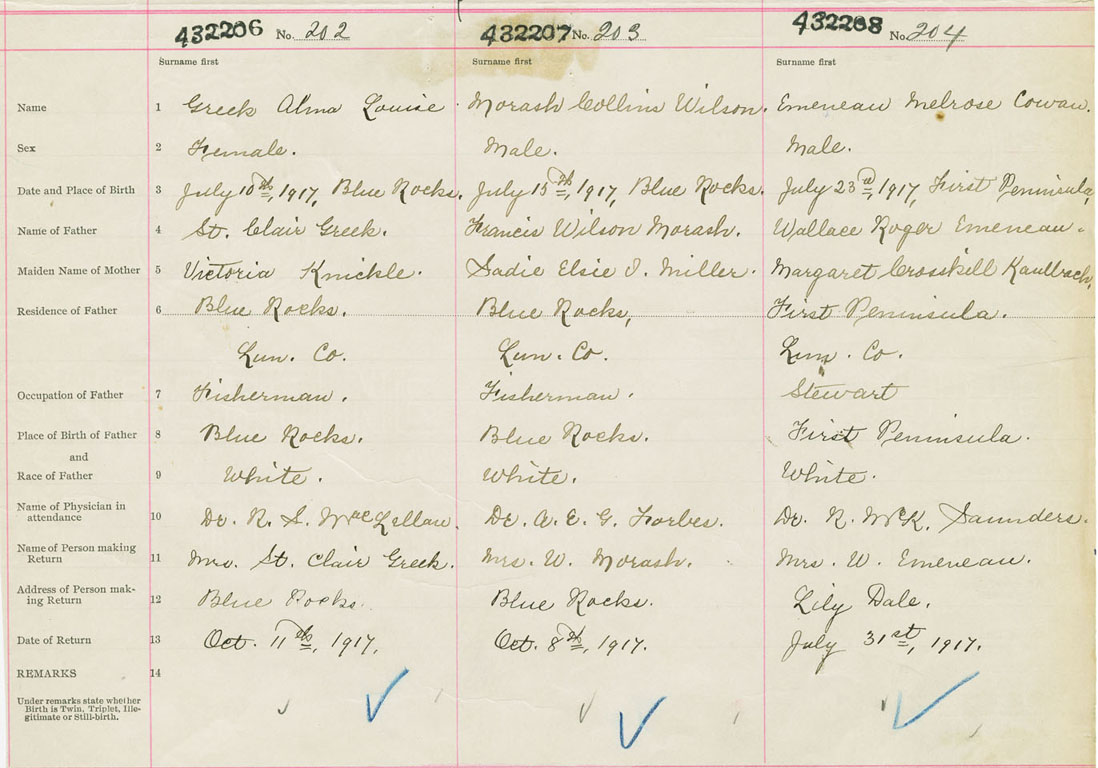 432206 No. 202 432207 No. 203 432208 No. 204
Surname first Surname first Surname first
Name 1 Greek Alma Louise Morash Collins Wilson. Emeneau Melrose Cowan.
Sex 2 Female. Male. Male.
Date and Place of Birth 3 July 10th, 1917, Blue Rocks. July 15th, 1917, Blue Rocks. July 23d, 1917, First Peninsula,
Name of Father 4 St. Clair Greek. Francis Wilson Morash. Wallace Roger Emeneau.
Maiden Name of Mother 5 Victoria Knickle. Sadie Elsie I. Miller. Margaret Crosskill Kaulbach.
Residence of Father 6 Blue Rocks. Blue Rocks, First Peninsula.
Lun. Co. Lun. Co. Lun. Co.
Occupation of Father 7 Fisherman. Fisherman. Stewart
Place of Birth of Father 8 Blue Rocks. Blue Rocks. First Peninsula.
and
Race of Father 9 White. White. White.
Name of Physician in
attendance 10 Dr. R. S. MacLellan. Dr. A. E. G. Forbes. Dr. R. McK. Saunders.
Name of Person making
Return 11 Mrs. St. Clair Greek. Mrs. W. Morash. Mrs. W. Emeneau.
Address of Person mak-
ing Return 12 Blue Rocks. Blue Rocks. Lily Dale.
Date of Return 13 Oct. 11th, 1917. Oct. 8th, 1917. July 31st, 1917.
REMARKS 14
Under remarks state whether
Birth is Twin, Triplet, Ille-
gitimate or Still-birth.